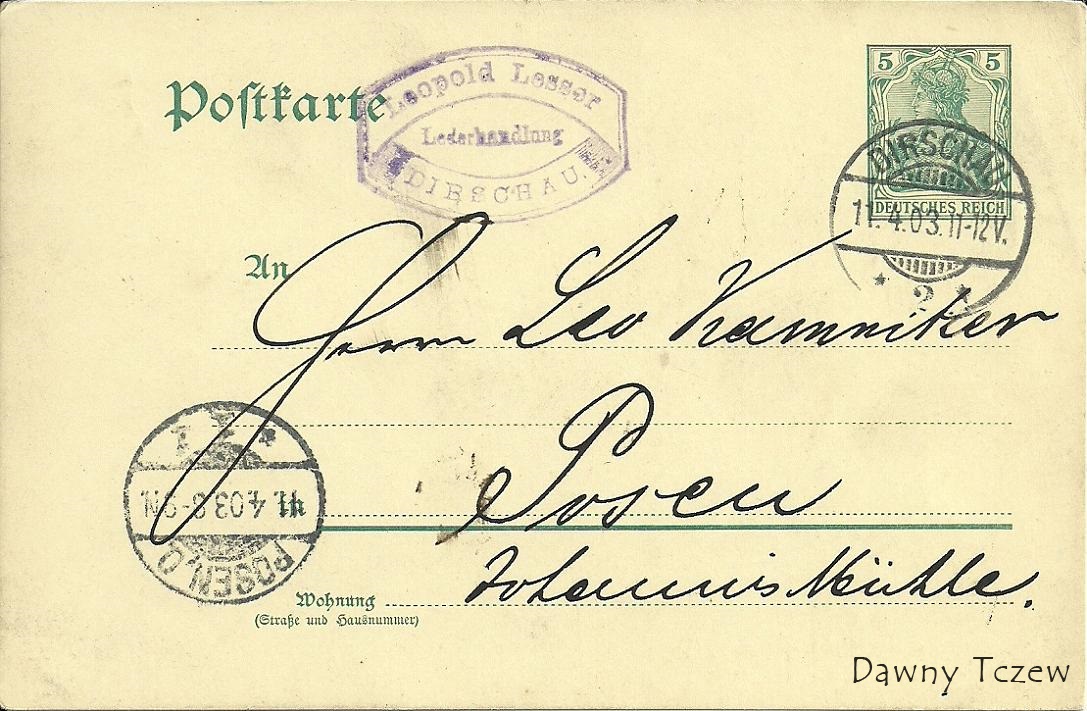 Postkarte
Leopold Lesser
Lederhandlung
DIRSCHAU.
5 5
DEUTSCHES REICH
DIRSCHAU
11.4.03.11-12V.
* 2 *
An
Herrn Leo Kamniker
Posen
in
Johannis Mühle.
Wohnung
(Straße und Hausnummer)
POSEN O
11.4.03.8-9N.
Dawny Tczew